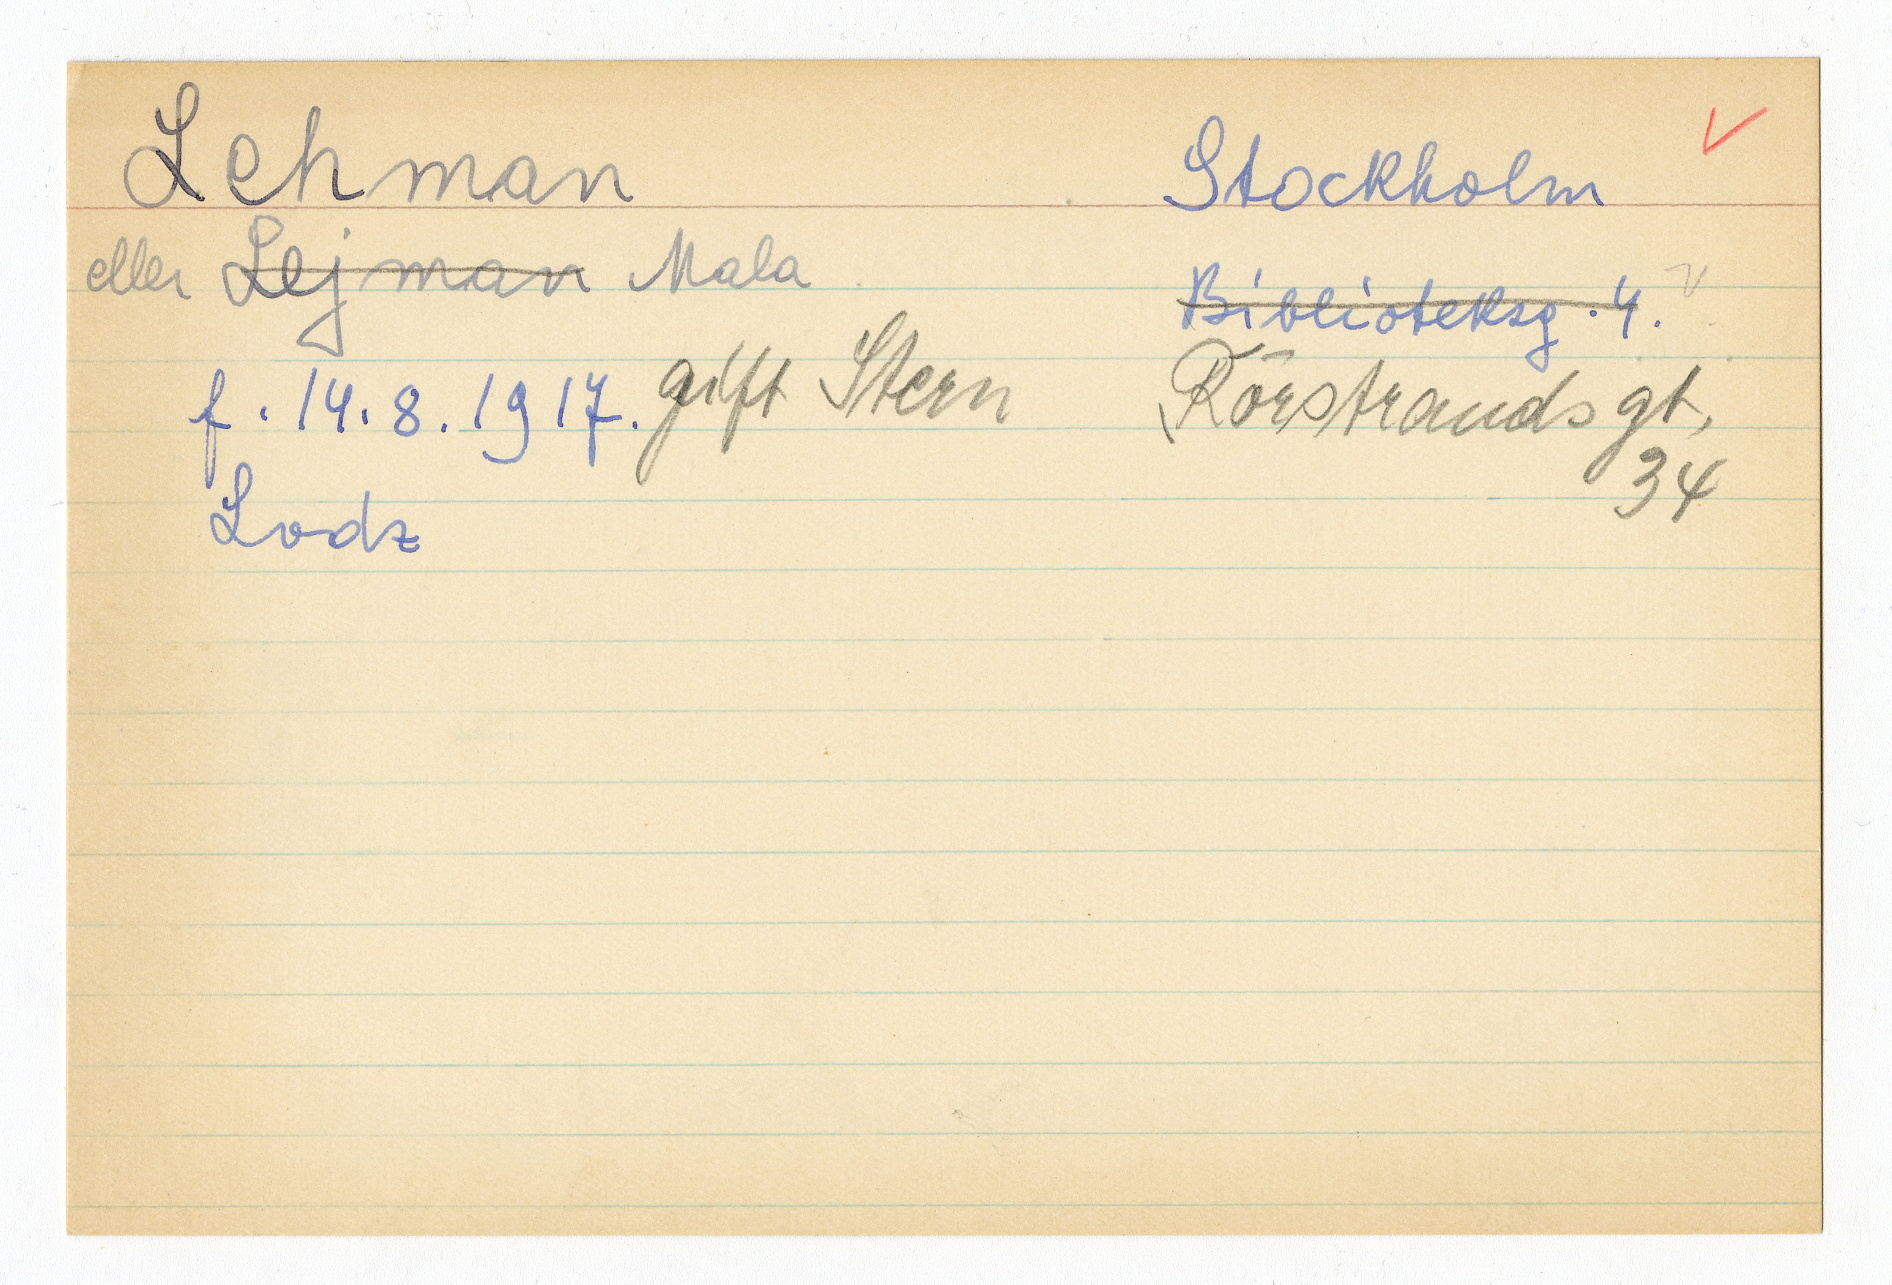 Lehman
eller Lejman Mala
f. 14.8.1917. gift Stern
Lodz
Stockholm
Biblioteksg. 4.
Rörstrandsgt,
34